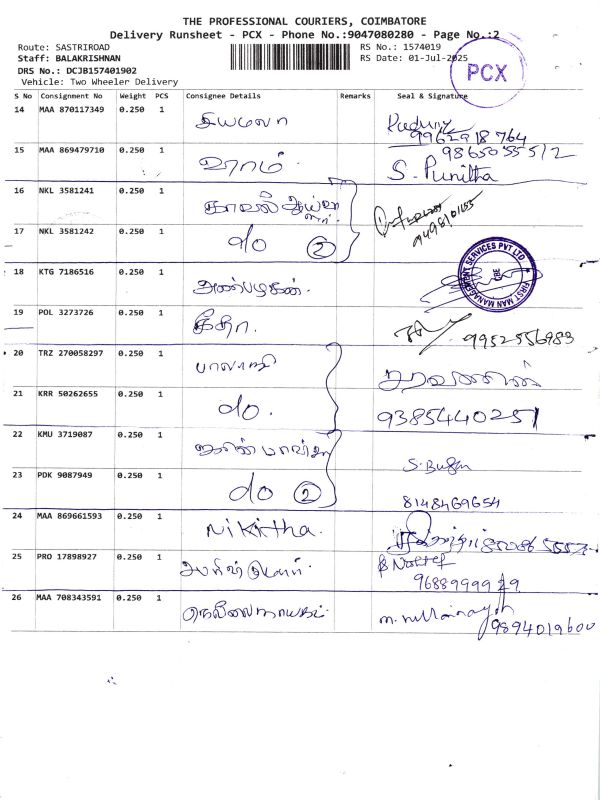 THE PROFESSIONAL COURIERS, COIMBATORE
Delivery Runsheet - PCX - Phone No.:9047080280 - Page No.:2
Route: SASTRIROAD
RS No.: 1574019
Staff: BALAKRISHNAN
RS Date: 01-Jul-2025
DRS No.: DCJB157401902
Vehicle: Two Wheeler Delivery
PCX
S No Consignment No Weight PCS Consignee Details Remarks Seal & Signature
14 MAA 870117349 0.250 1 சியமலா
9962918764
15 MAA 869479710 0.250 1 வாரம். S. Punitha
9865055512
16 NKL 3581241 0.250 1 காவல் ஆய்வாளர்.
17 NKL 3581242 0.250 1 do 2
18 KTG 7186516 0.250 1 அன்பழகன்.
FIRST MAN MANAGEMENT SERVICES PVT LTD
CBE
19 POL 3273726 0.250 1 கீதா. 9952556983
20 TRZ 270058297 0.250 1 பாலாஜி சரவணன்
21 KRR 50262655 0.250 1 do. 9385440251
22 KMU 3719087 0.250 1
23 PDK 9087949 0.250 1 do 2 8148469654
24 MAA 869661593 0.250 1 Nikitha.
25 PRO 17898927 0.250 1
26 MAA 708343591 0.250 1 நெல்லைநாயகம்
9894019600